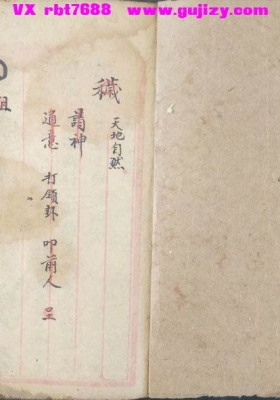 VX rbt7688 www.gujizy.com
祖
穢 天地自然
請神
通意 打領卦 叩前人 呈